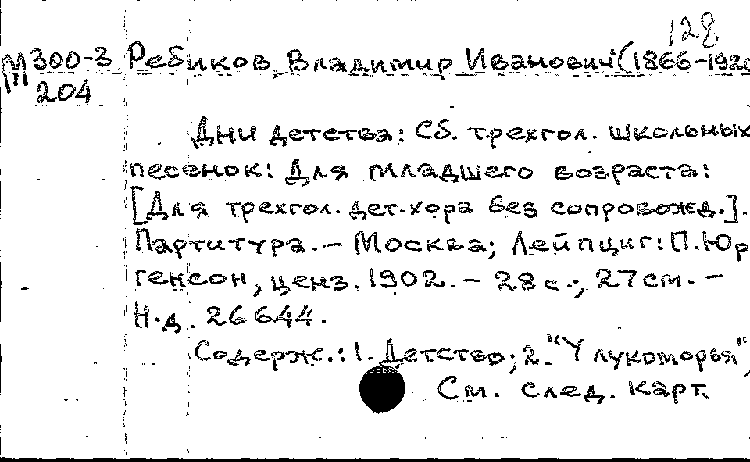 128
М300-3 Ребиков, Владимир Иванович (1866-1920
204
Дни детства: Сб. трехгол. школьных
песенок: Для младшего возраста:
[Для трехгол. дет. хора без сопровожд.].
Партитура. – Москва; Лейпциг: П. Юр
генсон, ценз. 1902. – 28 с.; 27 см. –
Н.д. 26644.
Содерж.: 1. Детство; 2. "У лукоморья",
См. след. карт.